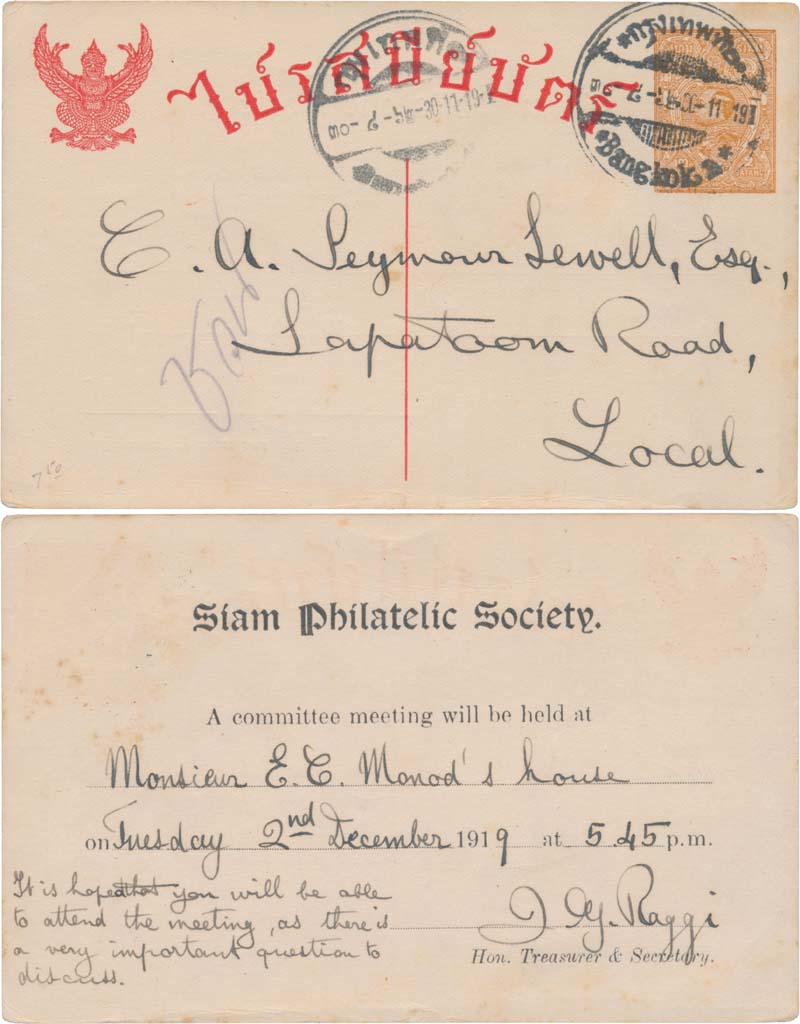 ไปรสนียบัตร
กรุงเทพฯ
๒-๘-๕๔-30-11-19
Bangkok
C. A. Seymour Sewell, Esq.,
Sapatoom Road,
Local.
7 50
Siam Philatelic Society.
A committee meeting will be held at
Monsieur E. C. Monod's house
on Tuesday 2nd December 1919 at 5.45 p.m.
It is hoped that you will be able
to attend the meeting, as there is
a very important question to
discuss.
J. G. Raggi
Hon. Treasurer & Secretary.